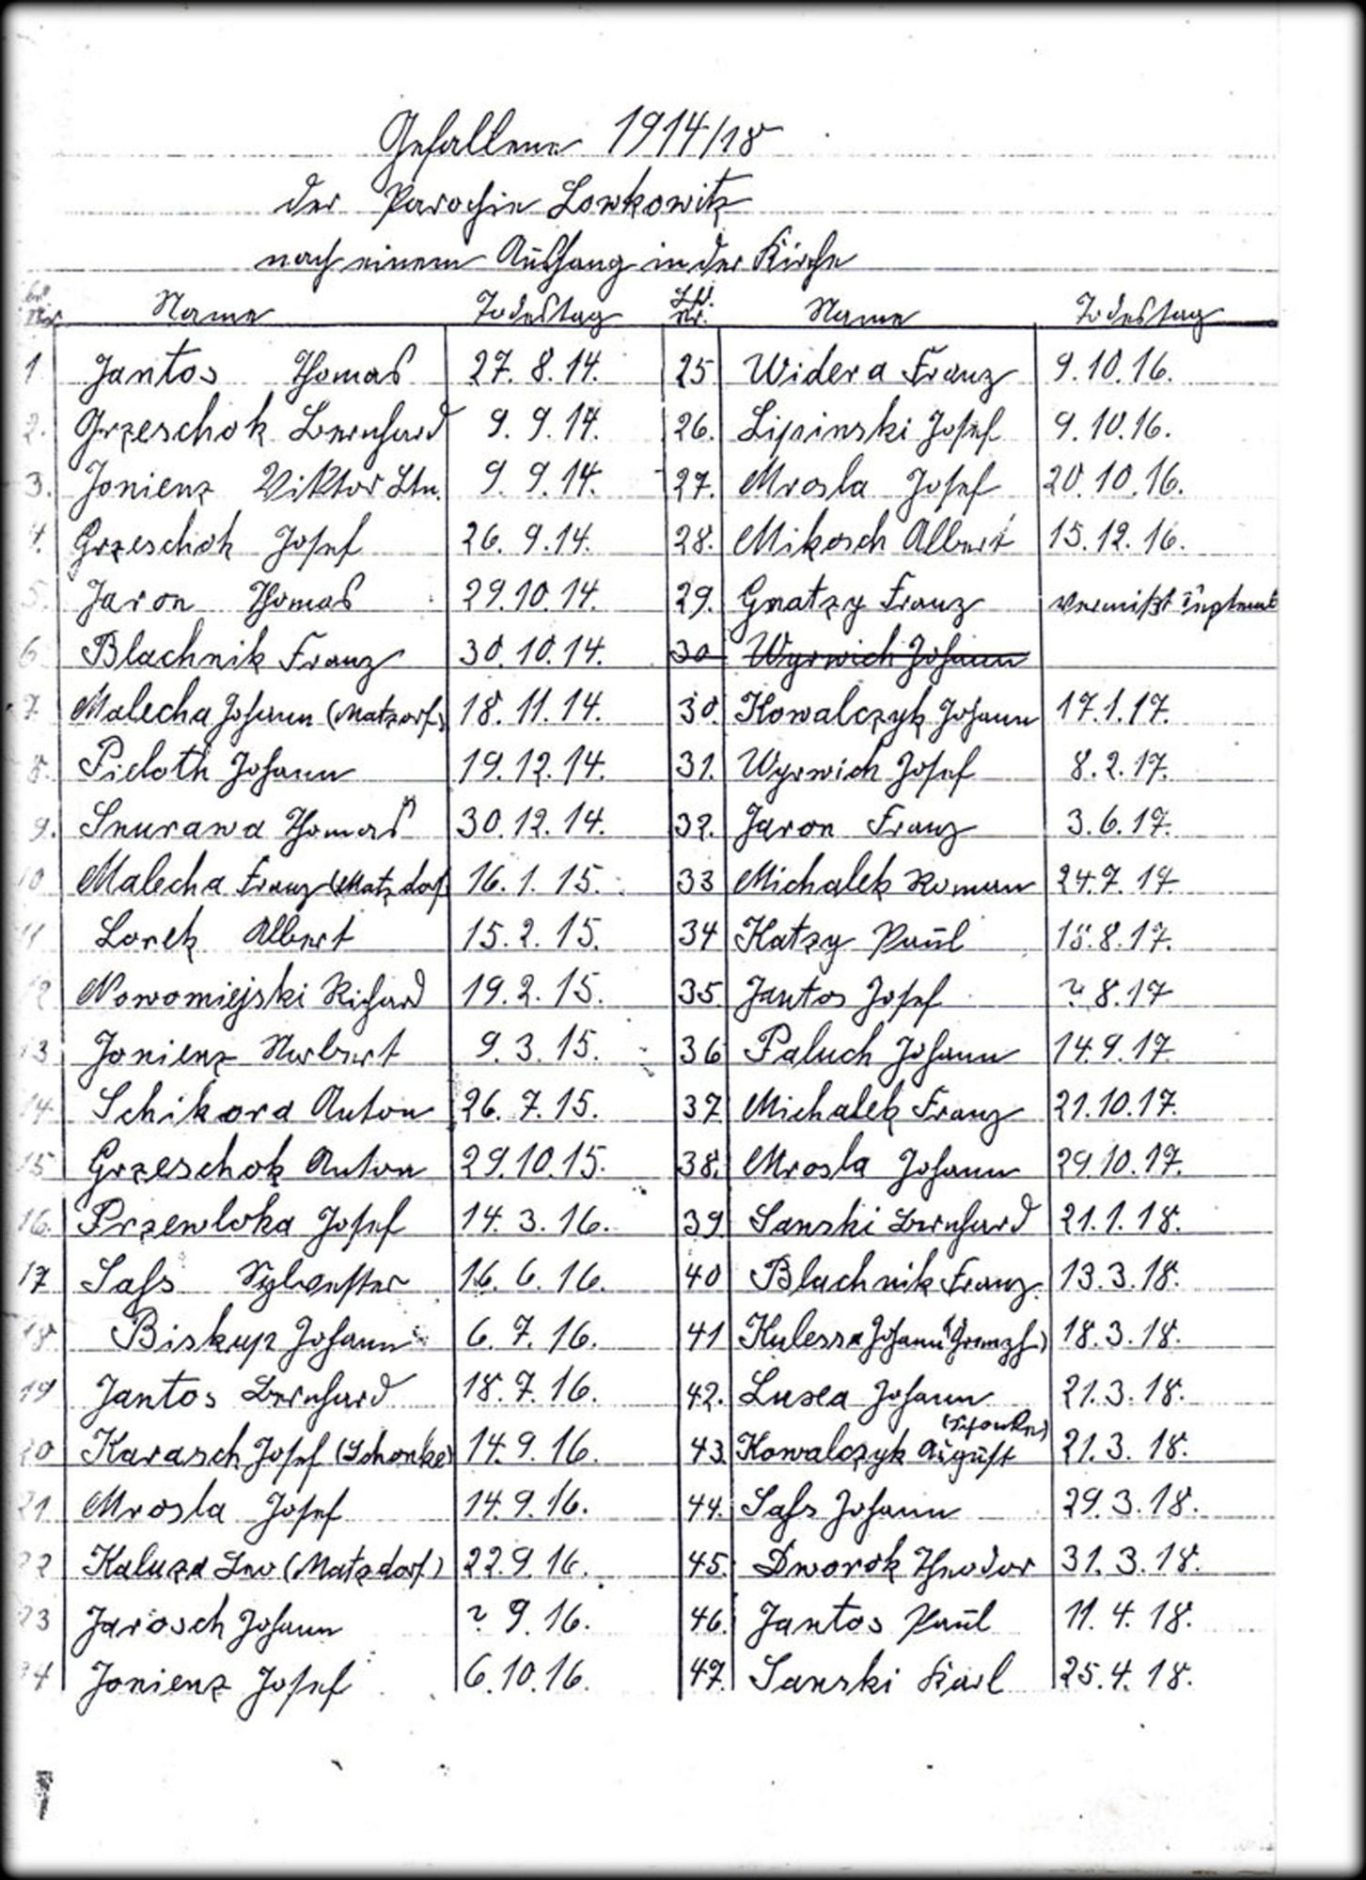 Gefallene 1914/18
der Parochie Lowkowitz
nach einem Aushang in der Kirche
Lfd. Nr. Name Todestag Lfd. Nr. Name Todestag
1. Jantos Thomas 27. 8. 14. 25 Widera Franz 9. 10. 16.
2. Grzeschok Bernhard 9. 9. 14. 26. Lipinski Josef 9. 10. 16.
3. Jonienz Viktor Ltn. 9. 9. 14. 27. Mrosla Josef 20. 10. 16.
4. Grzeschok Josef 26. 9. 14. 28. Mikosch Albert 15. 12. 16.
5. Jaron Thomas 29. 10. 14. 29. Gnatzy Franz vermißt
6. Blachnik Franz 30. 10. 14. 30 Wyrwich Johann
7. Malecha Johann (Matzdorf) 18. 11. 14. 30. Kowalczyk Johann 17. 1. 17.
8. Pieloth Johann 19. 12. 14. 31. Wyrwich Josef 8. 2. 17.
9. Snurawa Thomas 30. 12. 14. 32. Jaron Franz 3. 6. 17.
10 Malecha Franz (Matzdorf 16. 1. 15. 33 Michalek Roman 24. 7. 17
11 Lorek Albert 15. 2. 15. 34 Katzy Paul 18. 8. 17.
12 Nowomiejski Richard 19. 2. 15. 35. Jantos Josef ? 8. 17
13 Jonienz Norbert 9. 3. 15. 36 Paluch Johann 14. 9. 17
14 Schikora Anton 26. 7. 15. 37. Michalek Franz 21. 10. 17.
15 Grzeschok Anton 29. 10. 15. 38. Mrosla Johann 29. 10. 17.
16. Przewloka Josef 14. 3. 16. 39 Sanski Bernhard 21. 1. 18.
17 Sass Sylvester 16. 6. 16. 40 Blachnik Franz. 13. 3. 18.
18. Biskup Johann 6. 7. 16. 41 Kulessa Johann 18. 3. 18.
19 Jantos Bernhard 18. 7. 16. 42. Lusea Johann 21. 3. 18.
20 Karasch Josef (Schonke) 14. 9. 16. 43. Kowalczyk August (Schonke) 21. 3. 18.
21 Mrosla Josef 14. 9. 16. 44. Sass Johann 29. 3. 18.
22 Kaluza Leo (Matzdorf) 22. 9. 16. 45. Dworok Theodor 31. 3. 18.
23 Jarosch Johann ? 9. 16. 46. Jantos Paul 11. 4. 18.
24 Jonienz Josef 6. 10. 16. 47. Sanski Karl 25. 4. 18.